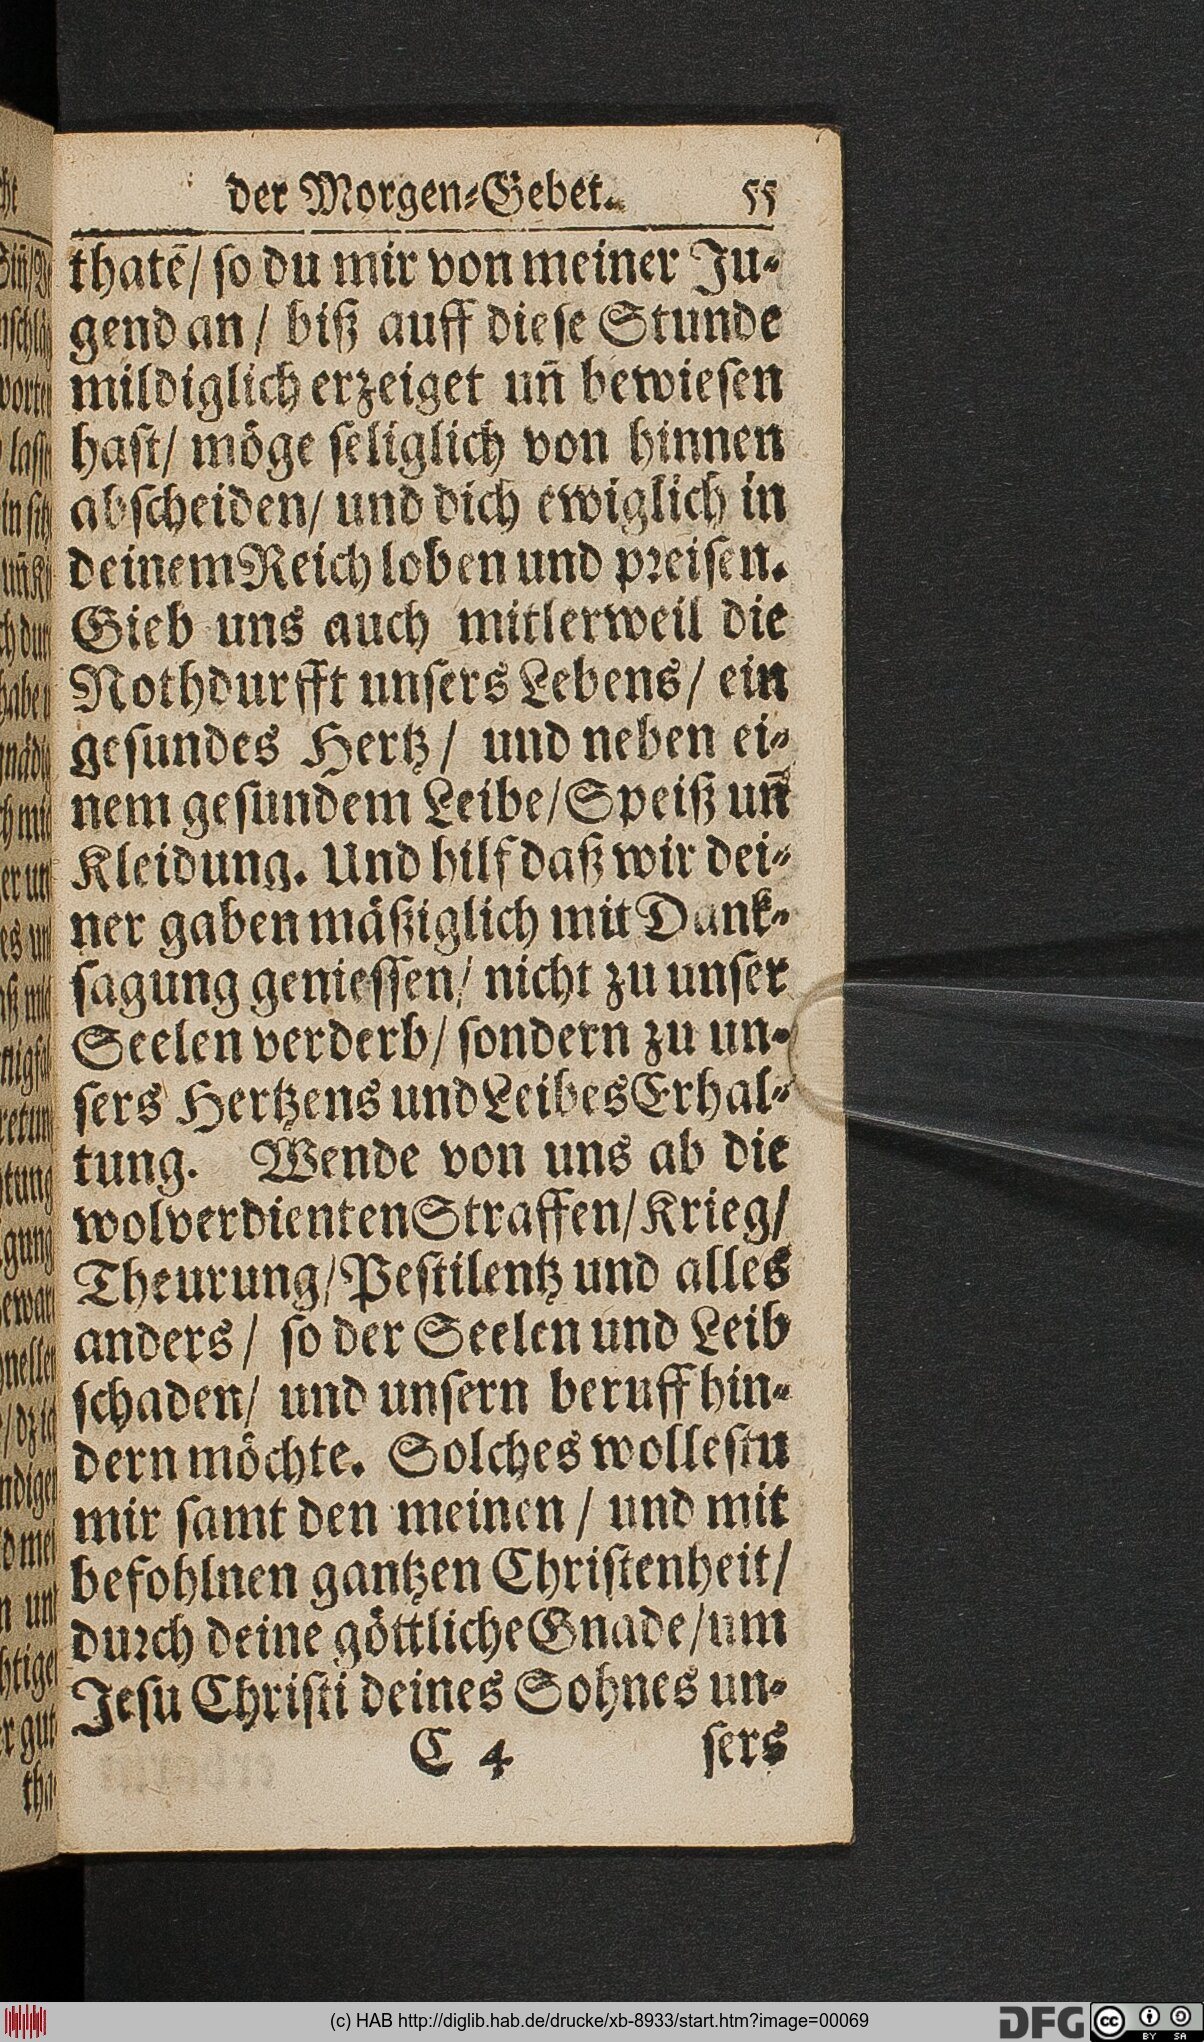 der Morgen-Gebet. 55
thatē/ so du mir von meiner Ju-
gend an / biß auff diese Stunde
mildiglich erzeiget un̄ bewiesen
hast/ möge seliglich von hinnen
abscheiden/ und dich ewiglich in
deinem Reich loben und preisen.
Gieb uns auch mitlerweil die
Nothdurfft unsers Lebens/ ein
gesundes Hertz/ und neben ei-
nem gesundem Leibe/Speiß un̄
Kleidung. Und hilf daß wir dei-
ner gaben mäßiglich mit Dank-
sagung geniessen/ nicht zu unser
Seelen verderb/ sondern zu un-
sers Hertzens und Leibes Erhal-
tung. Wende von uns ab die
wolverdienten Straffen/Krieg/
Theurung/Pestilentz und alles
anders/ so der Seelen und Leib
schaden/ und unsern beruff hin-
dern möchte. Solches wollestu
mir samt den meinen / und mit
befohlnen gantzen Christenheit/
durch deine göttliche Gnade/um
Jesu Christi deines Sohnes un-
C 4 sers
(c) HAB http://diglib.hab.de/drucke/xb-8933/start.htm?image=00069
DFG
cc BY SA